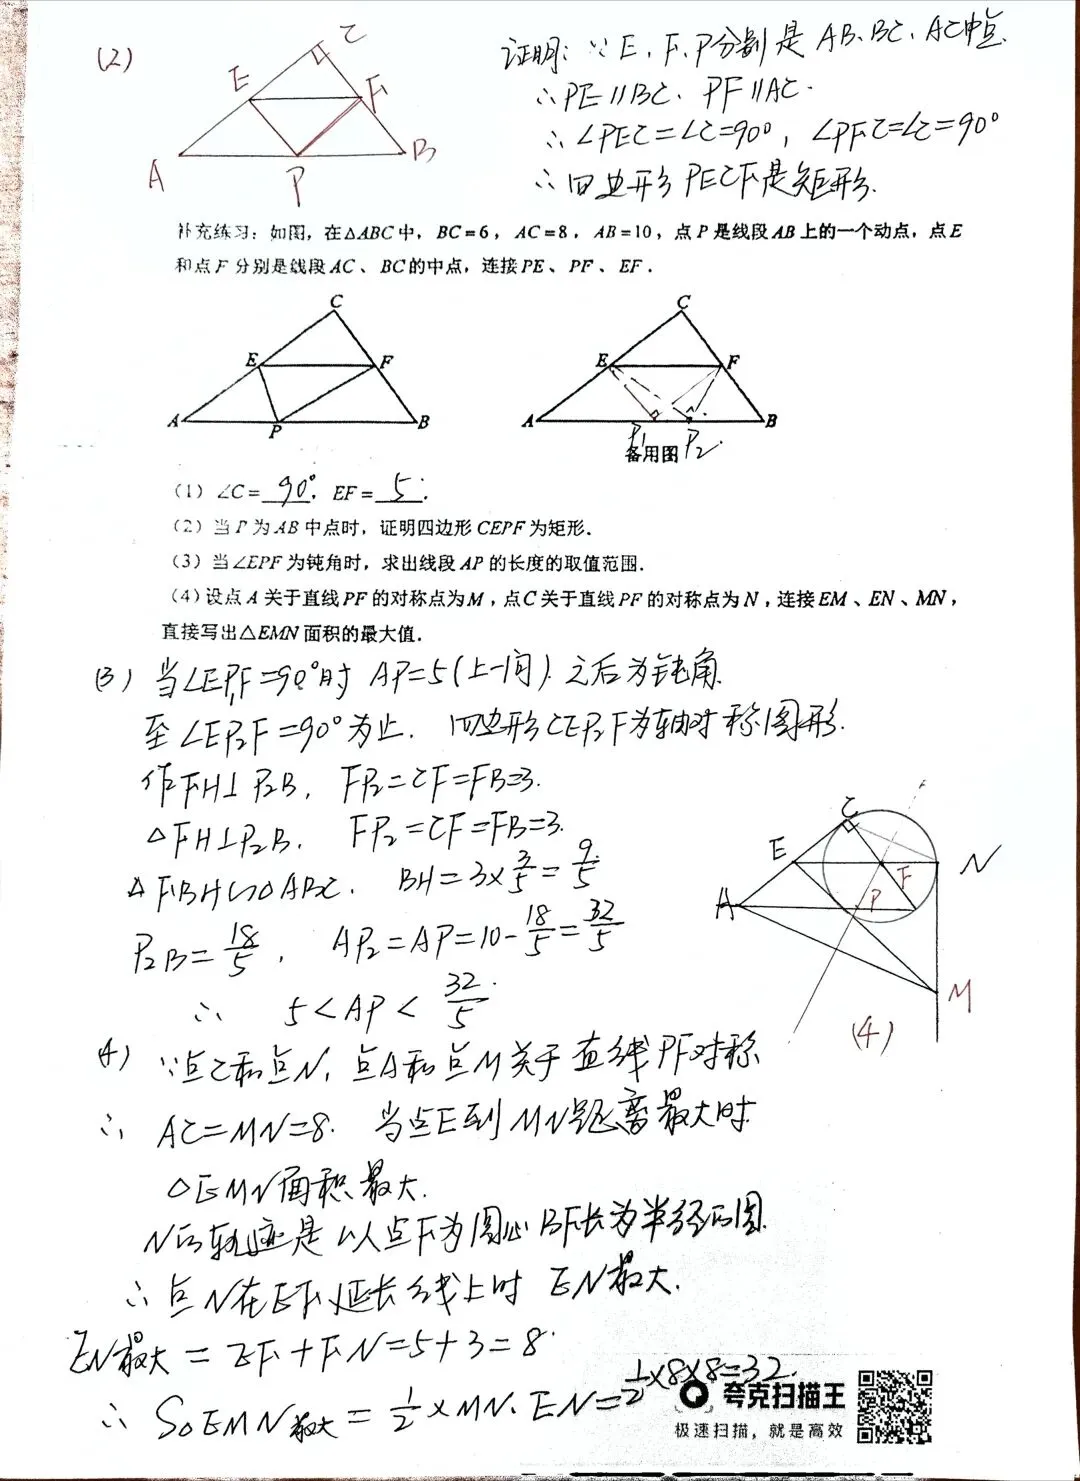 (2)
C
E
F
A
P
B
证明:∵E、F、P分别是AB、BC、AC中点.
∴PE∥BC、PF∥AC.
∴∠PEC=∠C=90°, ∠PFC=∠C=90°
∴四边形PECF是矩形.
补充练习:如图,在△ABC中,BC=6,AC=8,AB=10,点P是线段AB上的一个动点,点E
和点F分别是线段AC、BC的中点,连接PE、PF、EF.
C
E
F
A
P
B
C
E
F
A
P1
P2
B
备用图
(1)∠C=90°,EF=5.
(2)当P为AB中点时,证明四边形CEPF为矩形.
(3)当∠EPF为钝角时,求出线段AP的长度的取值范围.
(4)设点A关于直线PF的对称点为M,点C关于直线PF的对称点为N,连接EM、EN、MN,
直接写出△EMN面积的最大值.
(3) 当∠EP1F=90°时 AP=5(上一问).之后为钝角
至∠EP2F=90°为止. 四边形CEP2F为轴对称图形.
作FH⊥P2B, FP2=CF=FB=3.
△FH⊥P2B. FP2=CF=FB=3.
△FBH∽△ABC. BH=3×3/5=9/5
P2B=18/5, AP2=AP=10-18/5=32/5
∴ 5<AP<32/5
C
E
N
F
A
P
M
(4)
(4) ∵点C和点N,点A和点M关于直线PF对称
∴ AC=MN=8. 当点E到MN距离最大时
△EMN面积最大.
N的轨迹是以点F为圆心BF长为半径的圆.
∴点N在EF延长线上时 EN最大.
EN最大=EF+FN=5+3=8.
∴ S△EMN最大=1/2×MN·EN=1/2×8×8=32.
夸克扫描王
极速扫描,就是高效